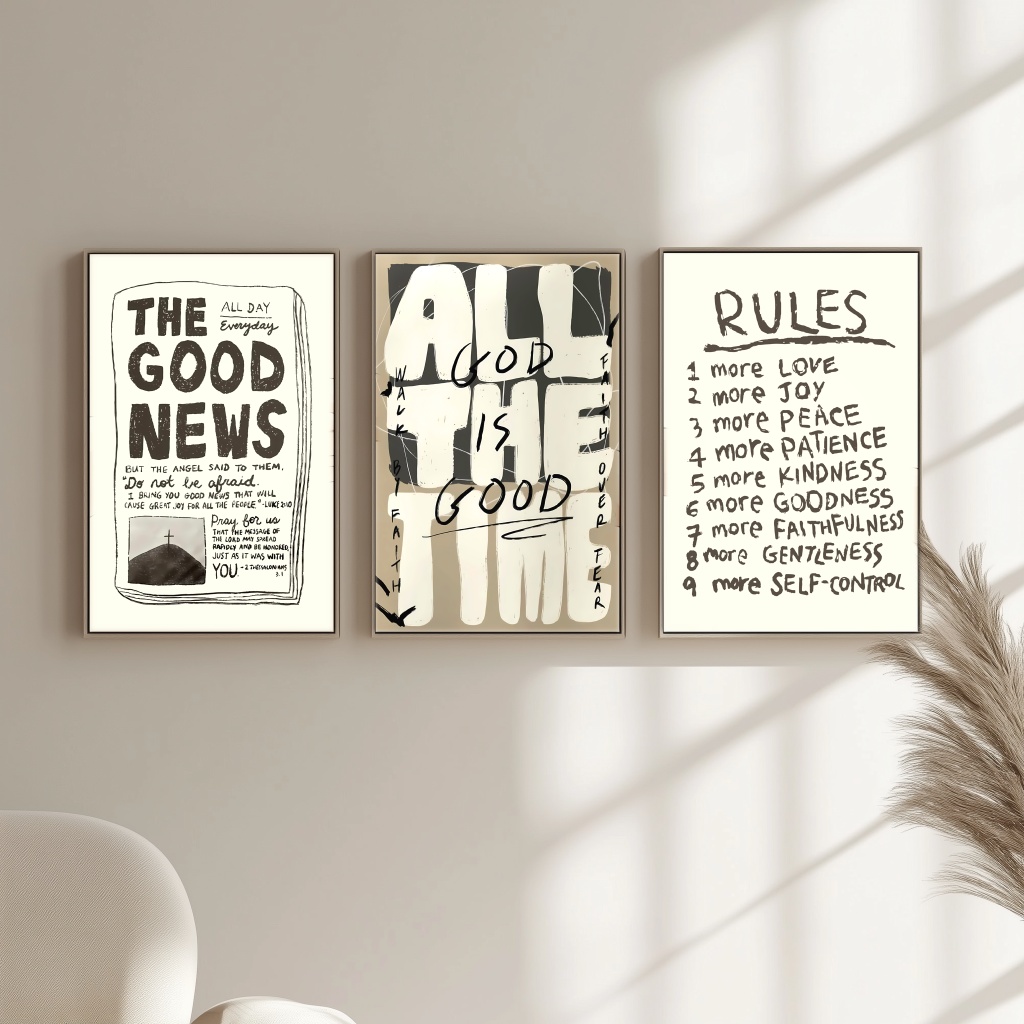 THE
ALL DAY
Everyday
GOOD
NEWS
BUT THE ANGEL SAID TO THEM,
"Do not be afraid.
I BRING YOU GOOD NEWS THAT WILL
CAUSE GREAT JOY FOR ALL THE PEOPLE"-LUKE 2:10
Pray for us
THAT THE MESSAGE OF
THE LORD MAY SPREAD
RAPIDLY AND BE HONORED,
JUST AS IT WAS WITH
YOU. -2 THESSALONIANS
3:1
ALL
THE
TIME
GOD
IS
GOOD
WALK BY FAITH
FAITH OVER FEAR
RULES
1 more LOVE
2 more JOY
3 more PEACE
4 more PATIENCE
5 more KINDNESS
6 more GOODNESS
7 more FAITHFULNESS
8 more GENTLENESS
9 more SELF-CONTROL